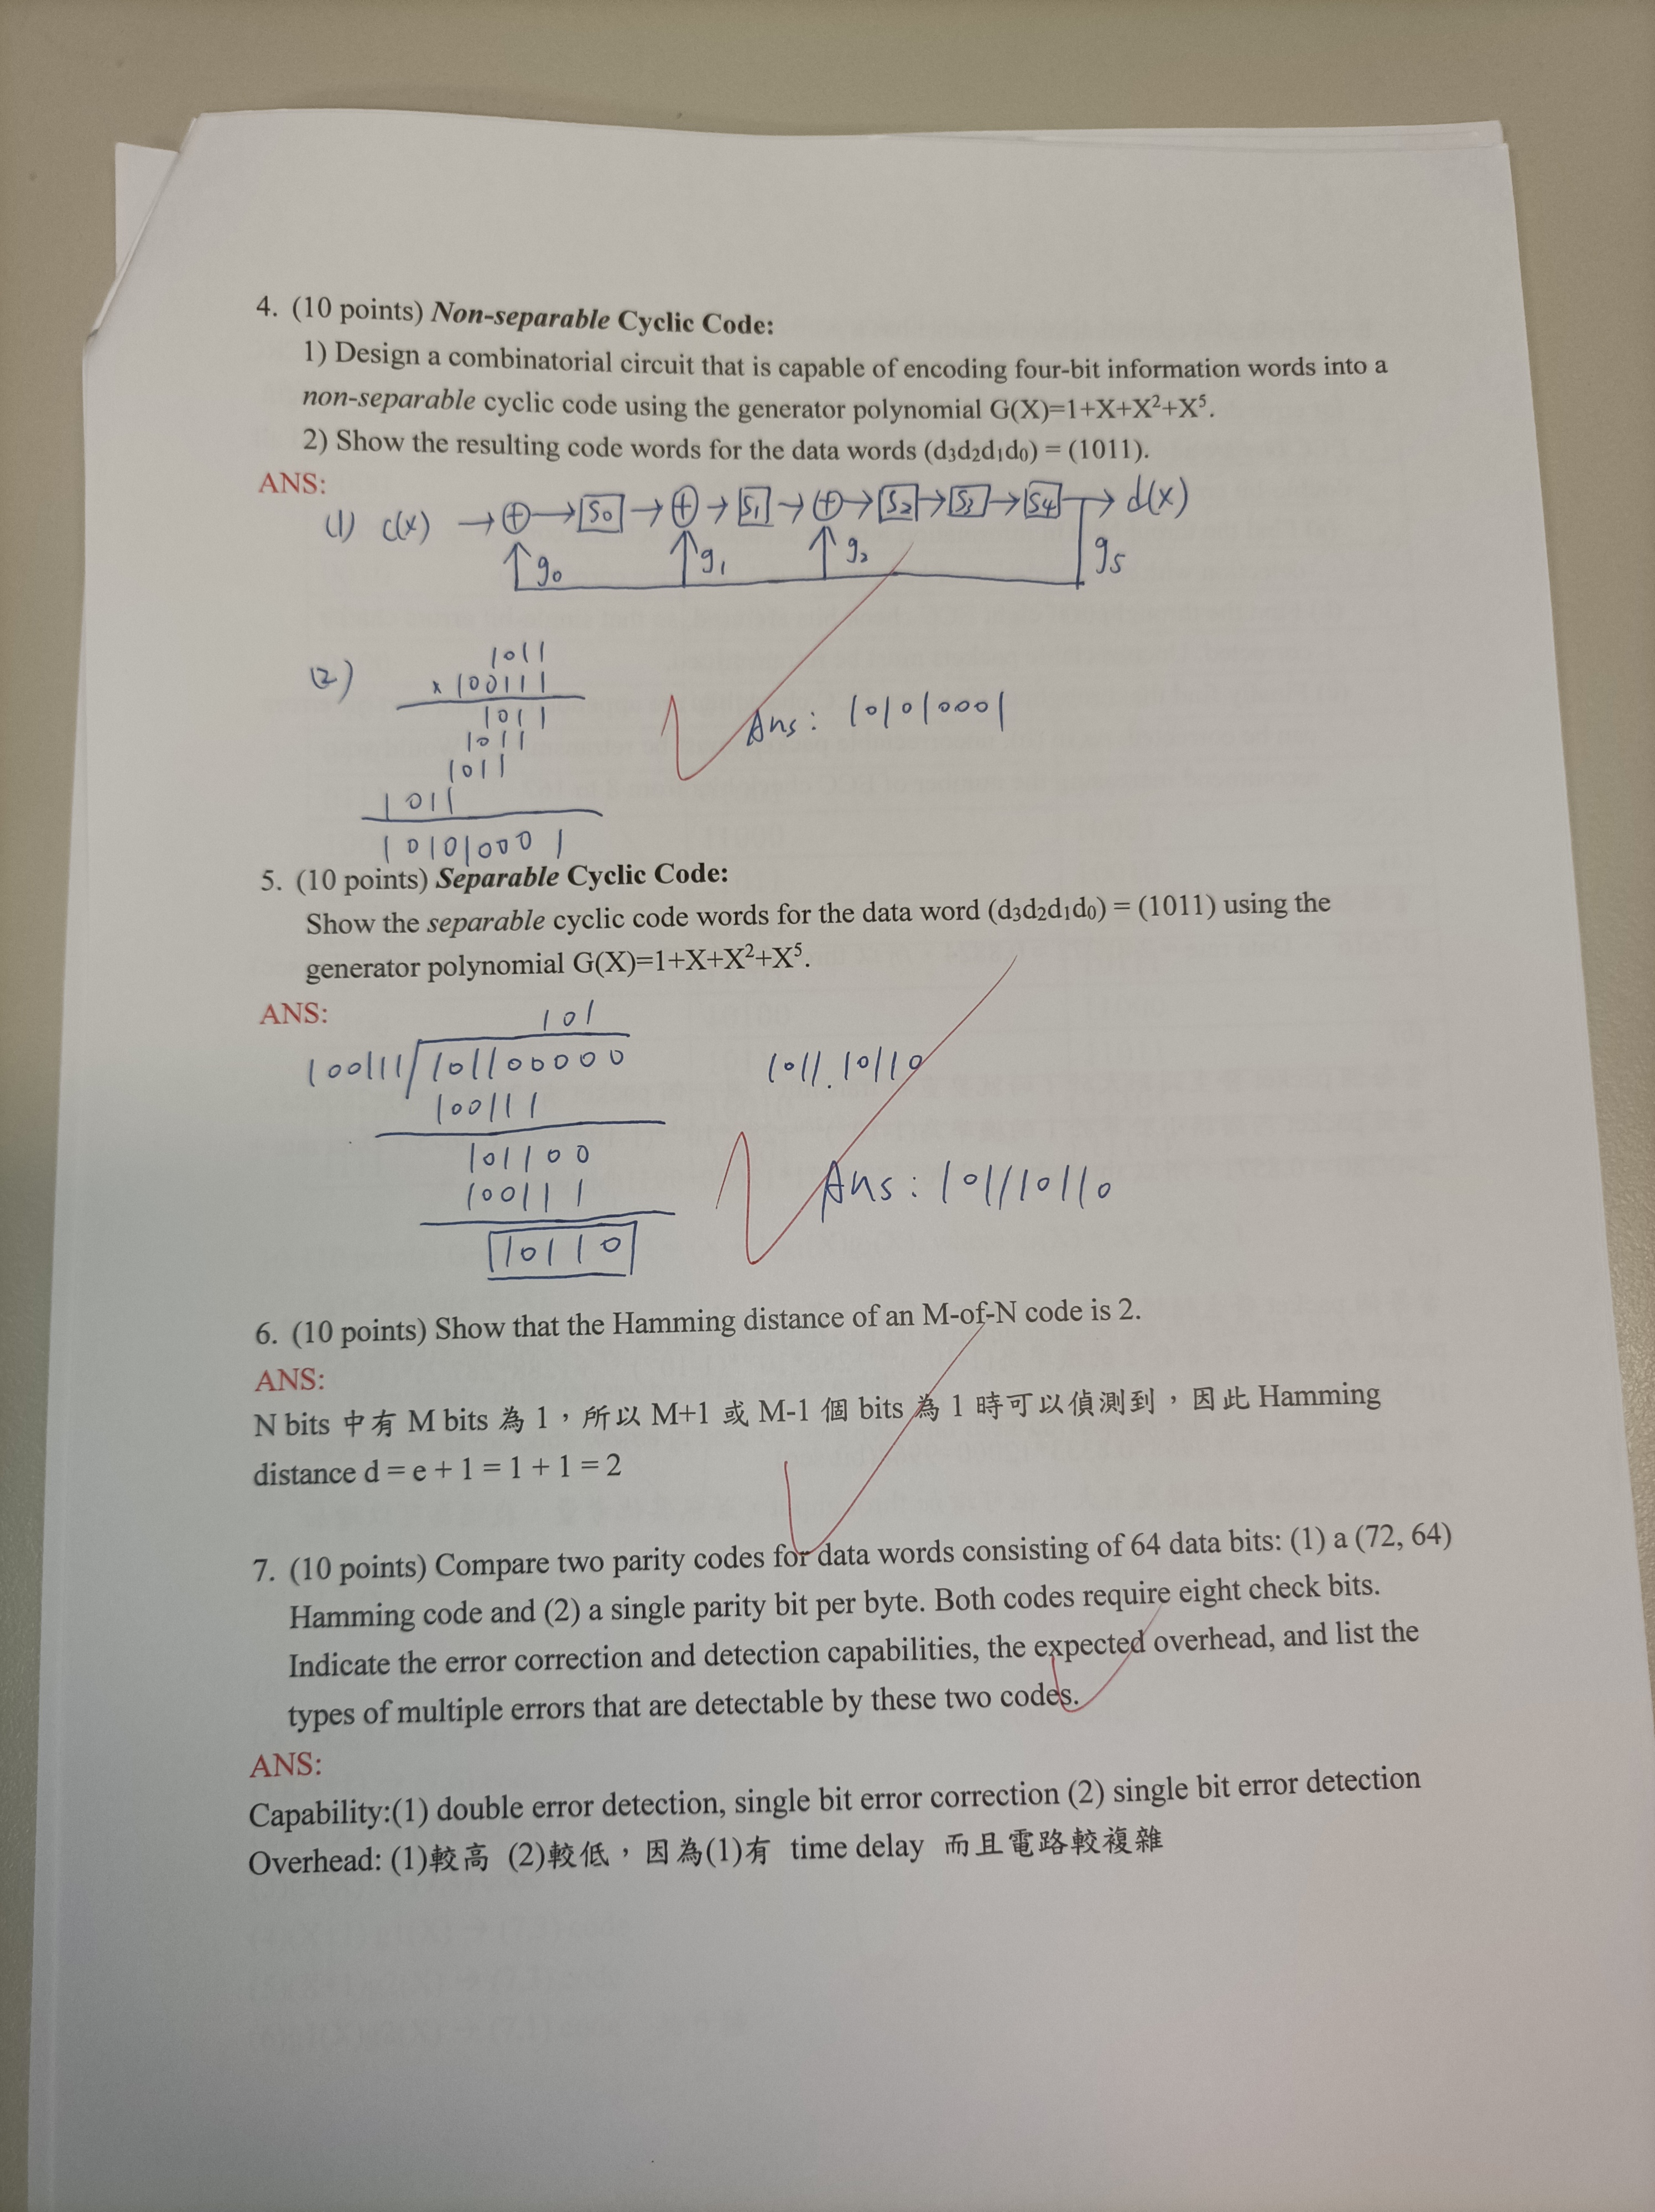 4. (10 points) Non-separable Cyclic Code:
1) Design a combinatorial circuit that is capable of encoding four-bit information words into a
non-separable cyclic code using the generator polynomial G(X)=1+X+X²+X⁵.
2) Show the resulting code words for the data words (d₃d₂d₁d₀) = (1011).
ANS:
(1) c(x) → ⊕ → S₀ → ⊕ → S₁ → ⊕ → S₂ → S₃ → S₄ → d(x)
g₀ g₁ g₂ g₅
(2) 1011
x 100111
1011
1011
1011
1011
101010001
Ans: 101010001
5. (10 points) Separable Cyclic Code:
Show the separable cyclic code words for the data word (d₃d₂d₁d₀) = (1011) using the
generator polynomial G(X)=1+X+X²+X⁵.
ANS:
101
100111 101100000
100111
101100
100111
10110
1011.10110
Ans: 101110110
6. (10 points) Show that the Hamming distance of an M-of-N code is 2.
ANS:
N bits 中有 M bits 為 1，所以 M+1 或 M-1 個 bits 為 1 時可以偵測到，因此 Hamming
distance d = e + 1 = 1 + 1 = 2
7. (10 points) Compare two parity codes for data words consisting of 64 data bits: (1) a (72, 64)
Hamming code and (2) a single parity bit per byte. Both codes require eight check bits.
Indicate the error correction and detection capabilities, the expected overhead, and list the
types of multiple errors that are detectable by these two codes.
ANS:
Capability:(1) double error detection, single bit error correction (2) single bit error detection
Overhead: (1)較高 (2)較低，因為(1)有 time delay 而且電路較複雜